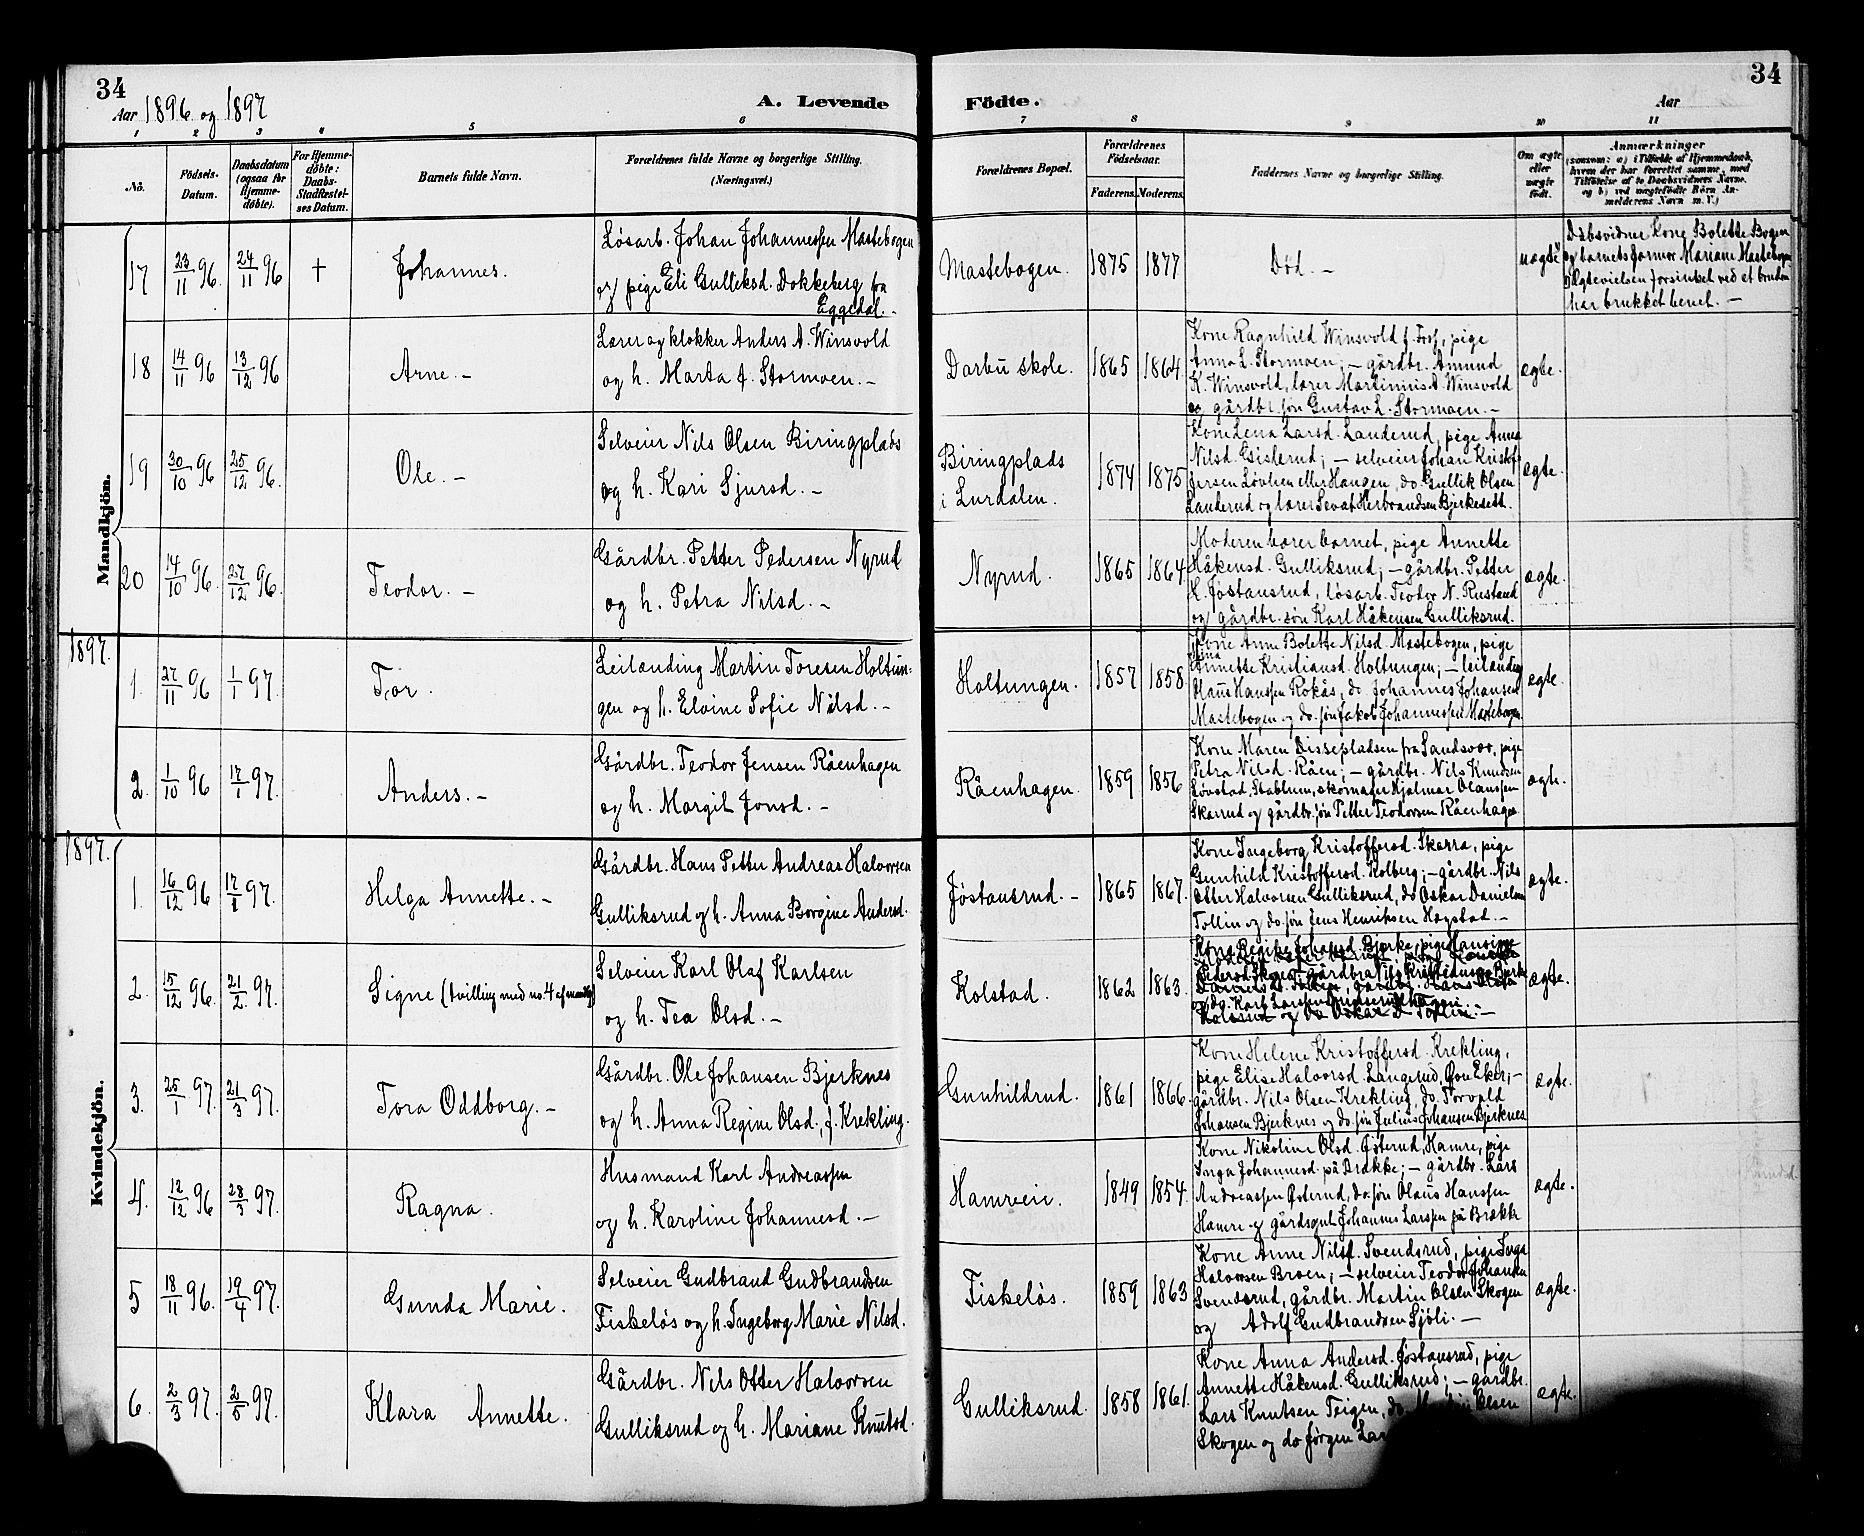 34
34
Aar 1896 og 1897
A. Levende
Födte.
Aar
1 2 3 4 5 6 7 8 9 10 11
No.
Födsels-Datum.
Daabsdatum (ogsaa for Hjemme-döbte).
For Hjemme-döbte: Daabs-Stadfæstel-ses Datum.
Barnets fulde Navn.
Forældrenes fulde Navne og borgerlige Stilling.
(Næringsvei.)
Forældrenes Bopæl.
Forældrenes Födselsaar.
Faderens. Moderens.
Faddernes Navne og borgerlige Stilling.
Om ægte eller uægte födt.
Anmærkninger
(saasom: a) i Tilfælde af Hjemmedaab,
hvem der har forrettet samme, med
Tilföielse af to Daabsvidners Navne,
og b) ved uægtefödte Börn An-
melderens Navn m. V.)
Mandkjön.
17 23/11 96. 24/11 96 + Johannes.
Løsarb. Johan Johannessen Mastebogen
og pige Eli Gulliksd. Dokkeberg fra
Eggedal. -
Mastebogen. 1875 1877 Død. - uægte
Dåbsvidner Kone Bolette Bogen
og barnets farmor Mariane Mastebogen
Ægtevielsen forsinket ved at bruden
har brukket benet. -
18 14/11 96 13/12 96 Arne. -
Lærer og klokker Anders A. Winsvold
og h. Marta f. Stormoen. -
Darbu skole. 1865 1864
Kone Ragnhild Winsvold f. Fosf, pige
Anna L. Stormoen; - gårdbr. Amund
K. Winsvold, lærer Martinius A. Winsvold
og gårdbr. søn Gustav L. Stormoen. -
ægte.
19 30/10 96 25/12 96. Ole. -
Selveier Nils Olsen Biringplads
og h. Kari Sjursd. -
Biringplads
i Lurdalen. 1874 1875
Kone Lena Larsd. Landerud, pige Anna
Nilsd. Gislerud; - selveier Johan Kristof-
fersen Løvlien eller Haugen, do Gullik Olsen
Landerud og lærer Sevat Herbrandsen Bjerkesett.
ægte.
20 14/10 96. 27/12 96. Teodor. -
Gårdbr. Petter Pedersen Nyrud
og h. Petra Nilsd. -
Nyrud. 1865 1864
Moderen bærer barnet, pige Annette
Håkensd. Gulliksrud; - gårdbr. Petter
K. Jøstansrud, løsarb. Teodor N. Rustand
og gårdbr. søn Karl Håkensen Gulliksrud.
ægte.
1897.
1. 27/11 96 1/1 97. Tor.
Leilænding Martin Toresen Holtun-
gen og h. Elvine Sofie Nilsd. -
Holtungen. 1857 1858
Kone Anne Bolette Nilsd. Mastebogen, pige
Annette Kristiansd. Holtungen; - leilænding
Olaus Hanssen Rokås, do Johannes Johansen
Mastebogen og do. søn Jakob Johannessen Mastebogen.
ægte.
2. 1/10 96 17/1 97. Anders. -
Gårdbr. Teodor Jensen Råenhagen
og h. Margit Jonsd. -
Råenhagen. 1859 1856
Kone Maren Dissepladsen fra Sandsvær, pige
Petra Nilsd. Råen; - gårdbr. Nils Knudsen
Lovstad, Stablum, skomager Hjalmar Olaussen
Skarrud og gårdbr. søn Petter Teodorsen Råenhagen.
ægte.
1897.
Kvindekjön.
1. 16/12 96 17/1 97. Helga Annette. -
Gårdbr. Hans Petter Andreas Halvorsen
Gulliksrud og h. Anna Borgine Andersd.
Jøstansrud. - 1865 1867.
Kone Ingeborg Kristoffersd. Skarra, pige
Gunhild Kristoffersd. Kolberg; - gårdbr. Nils
Otter Halvorsen Gulliksrud, do Oskar Danielsen
Tollin og do. søn Jens Henriksen Hagstad. -
ægte.
2. 15/12 96. 21/2. 97. Signe (tvilling med no. 4 af mandkj.)
Selveier Karl Olaf Karlsen
og h. Tea Olsd. -
Kolstad. 1862 1863.
Kone Regine Johansd. Bjerke, pige Hansine
Pedersd. Skogen; gårdbr. Nils Kristiansen Bjerke
og do. Karl Larsen
ægte.
3. 25/1 97. 21/3 97. Tora Oddborg. -
Gårdbr. Ole Johansen Bjerknes
og h. Anna Regine Olsd., f. Krekling.
Gunhildrud. 1861 1866.
Kone Helene Kristoffersd. Krekling,
pige Elise Halvorsd. Langerud, Øvre Eker; -
gårdbr. Nils Olsen Krekling, do. Torvald
Johansen Bjerknes og do. søn Julius Johansen Bjerknes
ægte.
4. 12/12 96 28/3 97. Ragna.
Husmand Karl Andreassen
og h. Karoline Johannesd. -
Hamreeie. 1849 1854.
Kone Nikoline Olsd. Østerud, Hamre, pige
Inga Johannesd. på Brække; - gårdbr. Lars
Andreassen Østerud, do. søn Olaus Hanssen
Hamre og gårdsgut Johannes Larssen på Brække
ægte.
5 18/11 96. 19/4 97. Gunda Marie.
Selveier Gudbrand Gudbrandsen
Fiskeløs og h. Ingeborg Marie Nilsd.
Fiskeløs. 1859 1863
Kone Anne Nilsd. Svendsrud, pige Inga
Halvorsen Broen; - selveier Teodor Johansen
Svendsrud, gårdbr. Martin Olsen Skogen
og Adolf Gudbrandsen Sjøli. -
ægte.
6. 2/3 97. 2/5 97. Klara Annette.
Gårdbr. Nils Otter Halvorsen
Gulliksrud og h. Mariane Knutsd.
Gulliksrud. 1858 1861.
Kone Anna Andersd. Jøstansrud, pige
Annette Håkensd. Gulliksrud; - gårdbr.
Lars Knutsen Teigen, do. Martin Olsen
Skogen og do Jørgen
ægte.